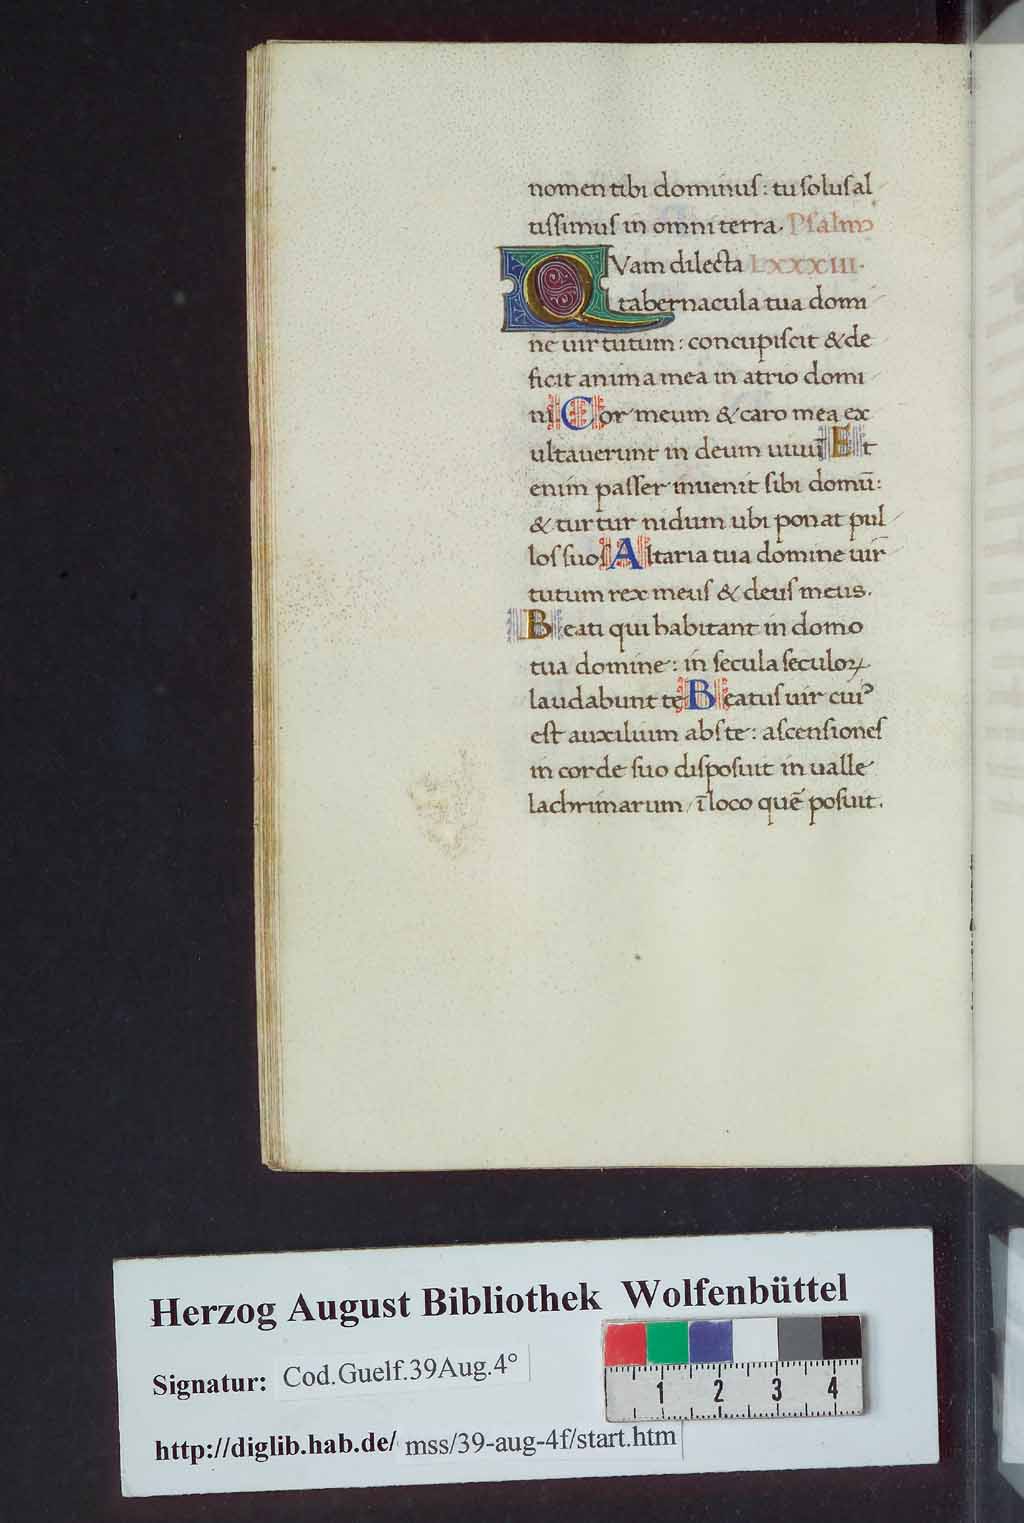 nomen tibi dominuſ: tu ſoluſ al
tiſſimuſ in omni terra. Pſalmo
QVam dilecta LXXXIII.
tabernacula tua domi
ne uirtutum: concupiſcit & de
ficit anima mea in atrio domi
ni Cor meum & caro mea ex
ultauerunt in deum uiuū Et
enim paſſer inuenit ſibi domū:
& turtur nidum ubi ponat pul
loſ ſuoſ Altaria tua domine uir
tutum rex meuſ & deuſ meus.
Beati qui habitant in domo
tua domine: in ſecula ſeculoꝝ
laudabunt te Beatuſ uir cuiꝰ
eſt auxilium abſ te: aſcenſioneſ
in corde ſuo diſpoſuit in ualle
lachrimarum / ī loco quē poſuit.
Herzog August Bibliothek Wolfenbüttel
Signatur: Cod.Guelf.39Aug.4°
http://diglib.hab.de/ mss/39-aug-4f/start.htm
1 2 3 4